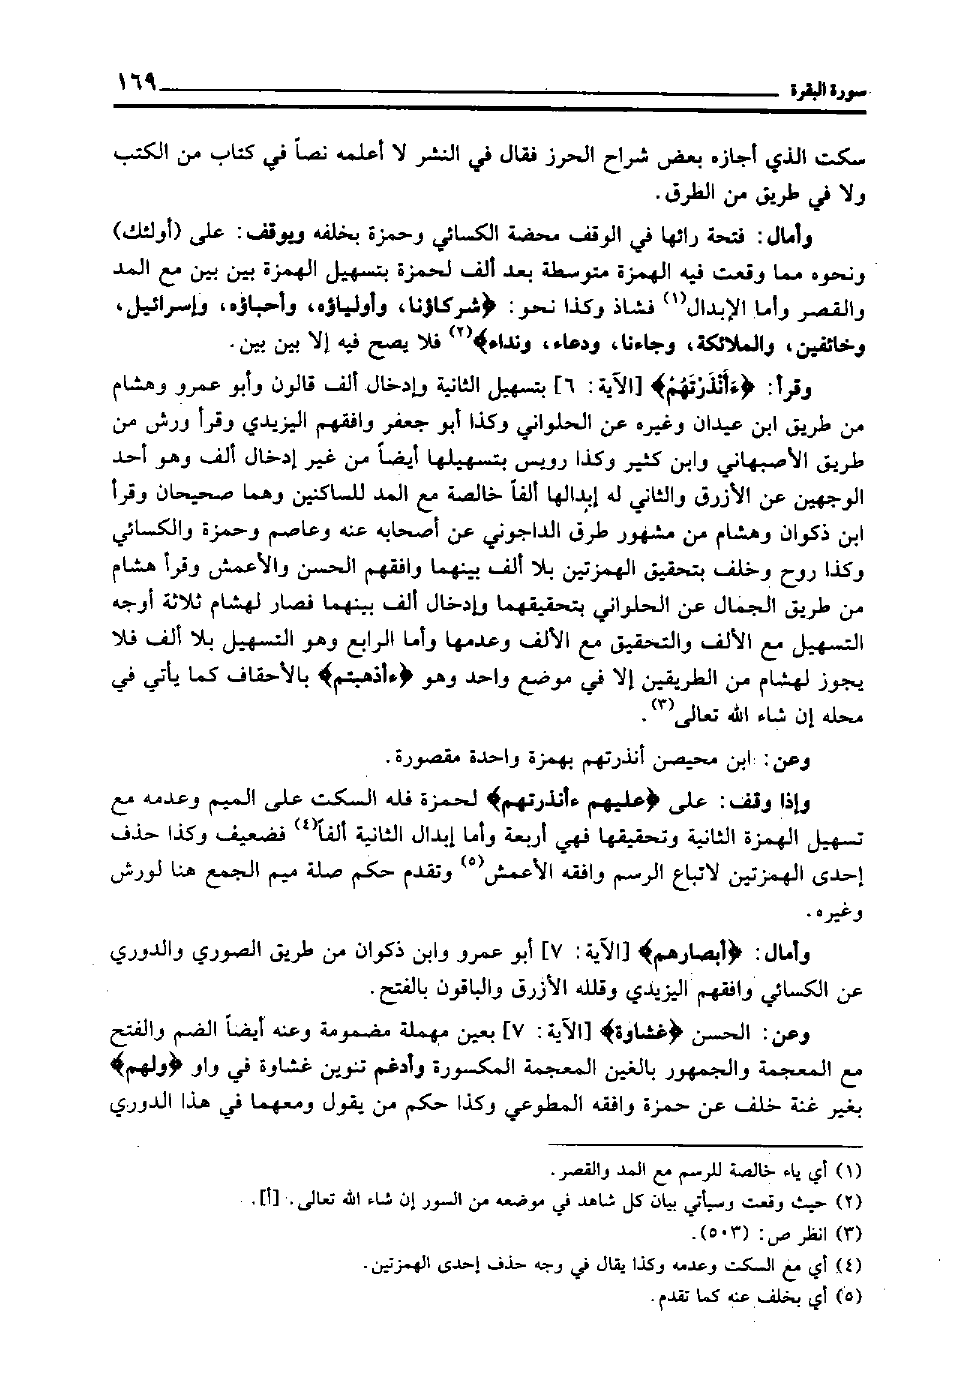 سورة البقرة ١٦٩
سكت الذي أجازه بعض شراح الحرز فقال في النشر لا أعلمه نصاً في كتاب من الكتب
ولا في طريق من الطرق.
وأمال: فتحة رائها في الوقف محضة الكسائي وحمزة بخلفه ويوقف: على (أولئك)
ونحوه مما وقعت فيه الهمزة متوسطة بعد ألف لحمزة بتسهيل الهمزة بين بين مع المد
والقصر وأما الإبدال(١) فشاذ وكذا نحو: ﴿شركاؤنا، وأولياؤه، وأحباؤه، وإسرائيل،
وخائفين، والملائكة، وجاءنا، ودعاء، ونداء﴾(٢) فلا يصح فيه إلا بين بين.
وقرأ: ﴿ءَأَنْذَرْتَهُمْ﴾ [الآية: ٦] بتسهيل الثانية وإدخال ألف قالون وأبو عمرو وهشام
من طريق ابن عيدان وغيره عن الحلواني وكذا أبو جعفر وافقهم اليزيدي وقرأ ورش من
طريق الأصبهاني وابن كثير وكذا رويس بتسهيلها أيضاً من غير إدخال ألف وهو أحد
الوجهين عن الأزرق والثاني له إبدالها ألفاً خالصة مع المد للساكنين وهما صحيحان وقرأ
ابن ذكوان وهشام من مشهور طرق الداجوني عن أصحابه عنه وعاصم وحمزة والكسائي
وكذا روح وخلف بتحقيق الهمزتين بلا ألف بينهما وافقهم الحسن والأعمش وقرأ هشام
من طريق الجمال عن الحلواني بتحقيقهما وإدخال ألف بينهما فصار لهشام ثلاثة أوجه
التسهيل مع الألف والتحقيق مع الألف وعدمها وأما الرابع وهو التسهيل بلا ألف فلا
يجوز لهشام من الطريقين إلا في موضع واحد وهو ﴿ءأذهبتم﴾ بالأحقاف كما يأتي في
محله إن شاء الله تعالى(٣).
وعن: ابن محيصن أنذرتهم بهمزة واحدة مقصورة.
وإذا وقف: على ﴿عليهم ءأنذرتهم﴾ لحمزة فله السكت على الميم وعدمه مع
تسهيل الهمزة الثانية وتحقيقها فهي أربعة وأما إبدال الثانية ألفاً(٤) فضعيف وكذا حذف
إحدى الهمزتين لاتباع الرسم وافقه الأعمش(٥) وتقدم حكم صلة ميم الجمع هنا لورش
وغيره.
وأمال: ﴿أبصارهم﴾ [الآية: ٧] أبو عمرو وابن ذكوان من طريق الصوري والدوري
عن الكسائي وافقهم اليزيدي وقلله الأزرق والباقون بالفتح.
وعن: الحسن ﴿غشاوة﴾ [الآية: ٧] بعين مهملة مضمومة وعنه أيضاً الضم والفتح
مع المعجمة والجمهور بالغين المعجمة المكسورة وأدغم تنوين غشاوة في واو ﴿ولهم﴾
بغير غنة خلف عن حمزة وافقه المطوعي وكذا حكم من يقول ومعهما في هذا الدوري
(١) أي ياء خالصة للرسم مع المد والقصر.
(٢) حيث وقعت وسيأتي بيان كل شاهد في موضعه من السور إن شاء الله تعالى. [أ].
(٣) انظر ص: (٥٠٣).
(٤) أي مع السكت وعدمه وكذا يقال في وجه حذف إحدى الهمزتين.
(٥) أي بخلف عنه كما تقدم.